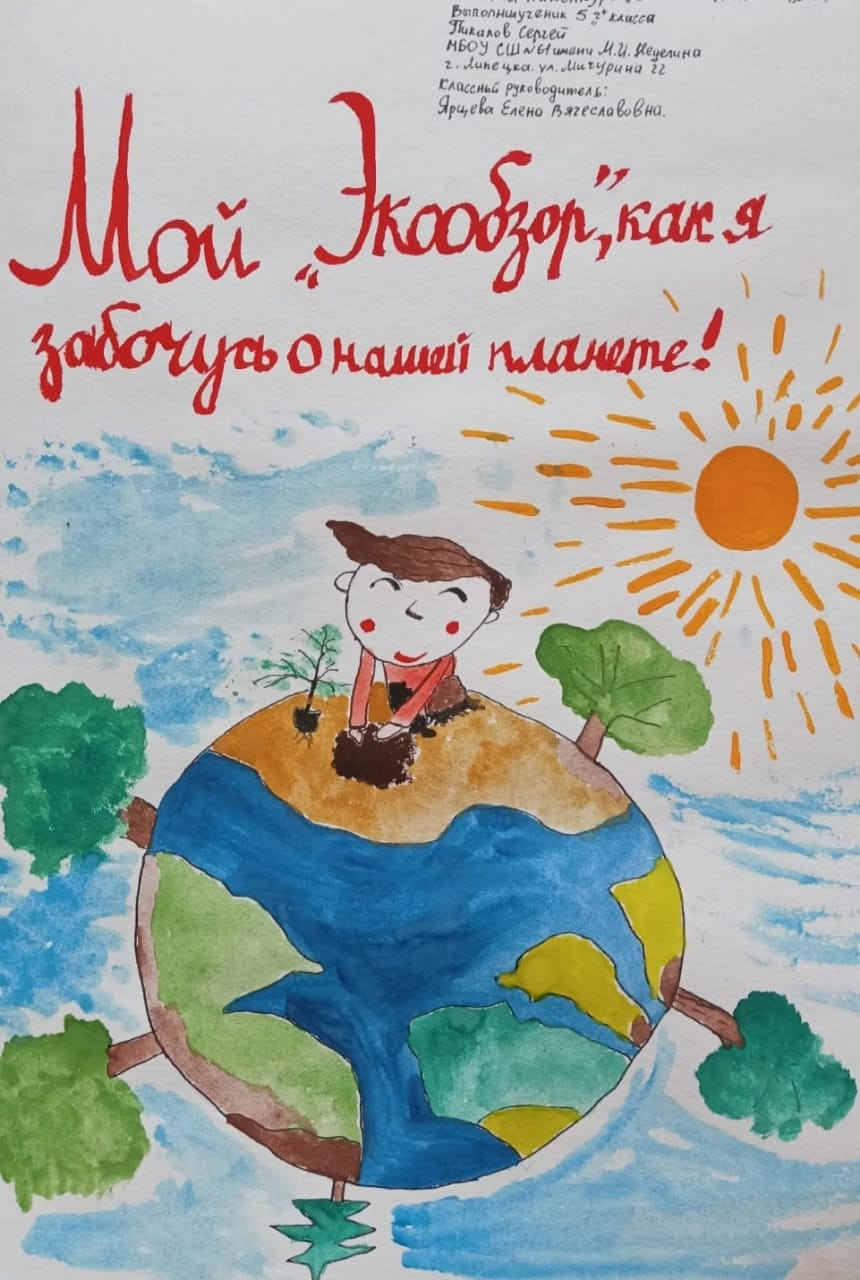 Выполнил ученик 5 "г" класса
Пикалов Сергей
МБОУ СШ №61 имени М.И. Неделина
г. Липецка. ул. Мичурина 22
Классный руководитель:
Ярцева Елена Вячеславовна.
Мой „Экообзор”, как я
забочусь о нашей планете!